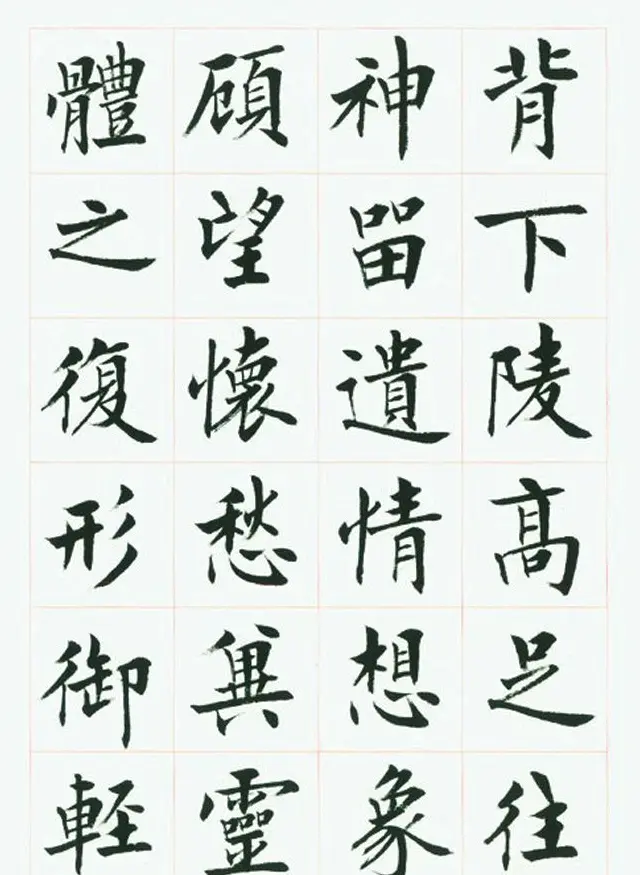 背下陵髙足往
神留遺情想象
顧望懷愁冀靈
體之復形御輕